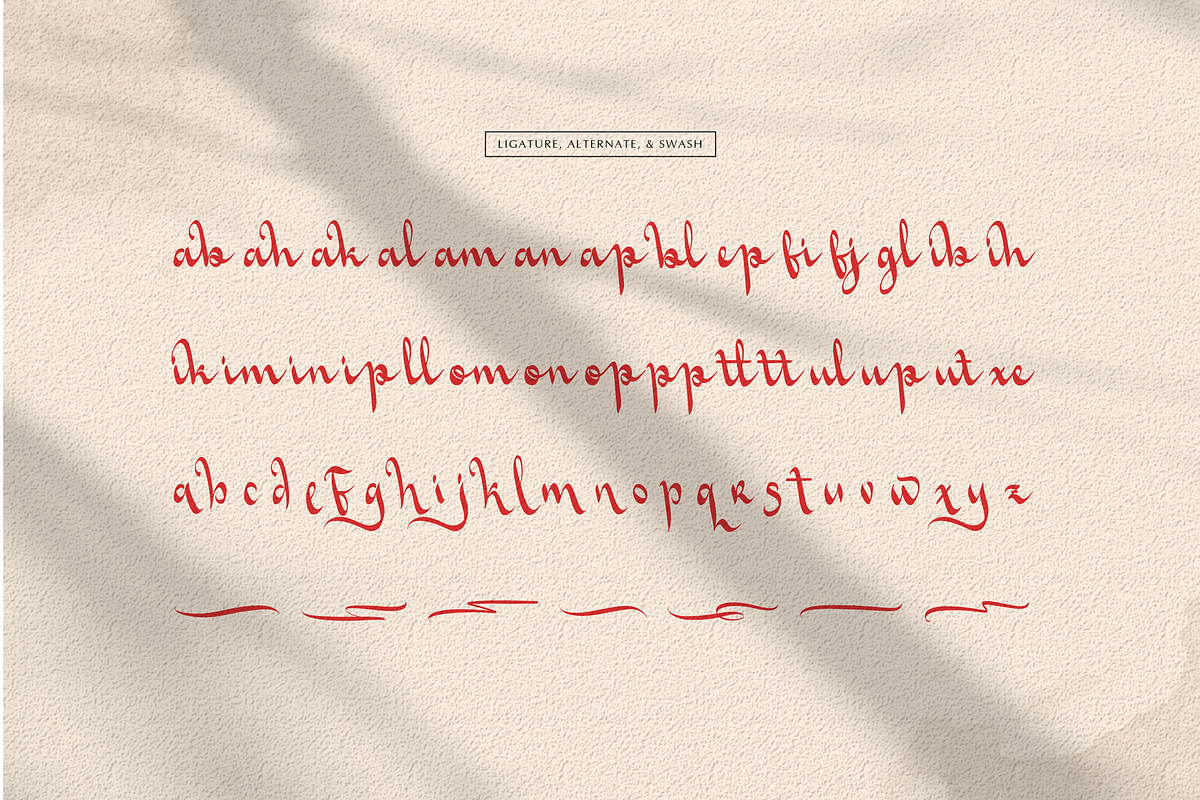 LIGATURE, ALTERNATE, & SWASH
ab ah ak al am an ap bl ep fi fj gl ib ih
ik im in ip ll om on op pp tl tt ul up ut xe
a b c d e f g h i j k l m n o p q r s t u v w x y z